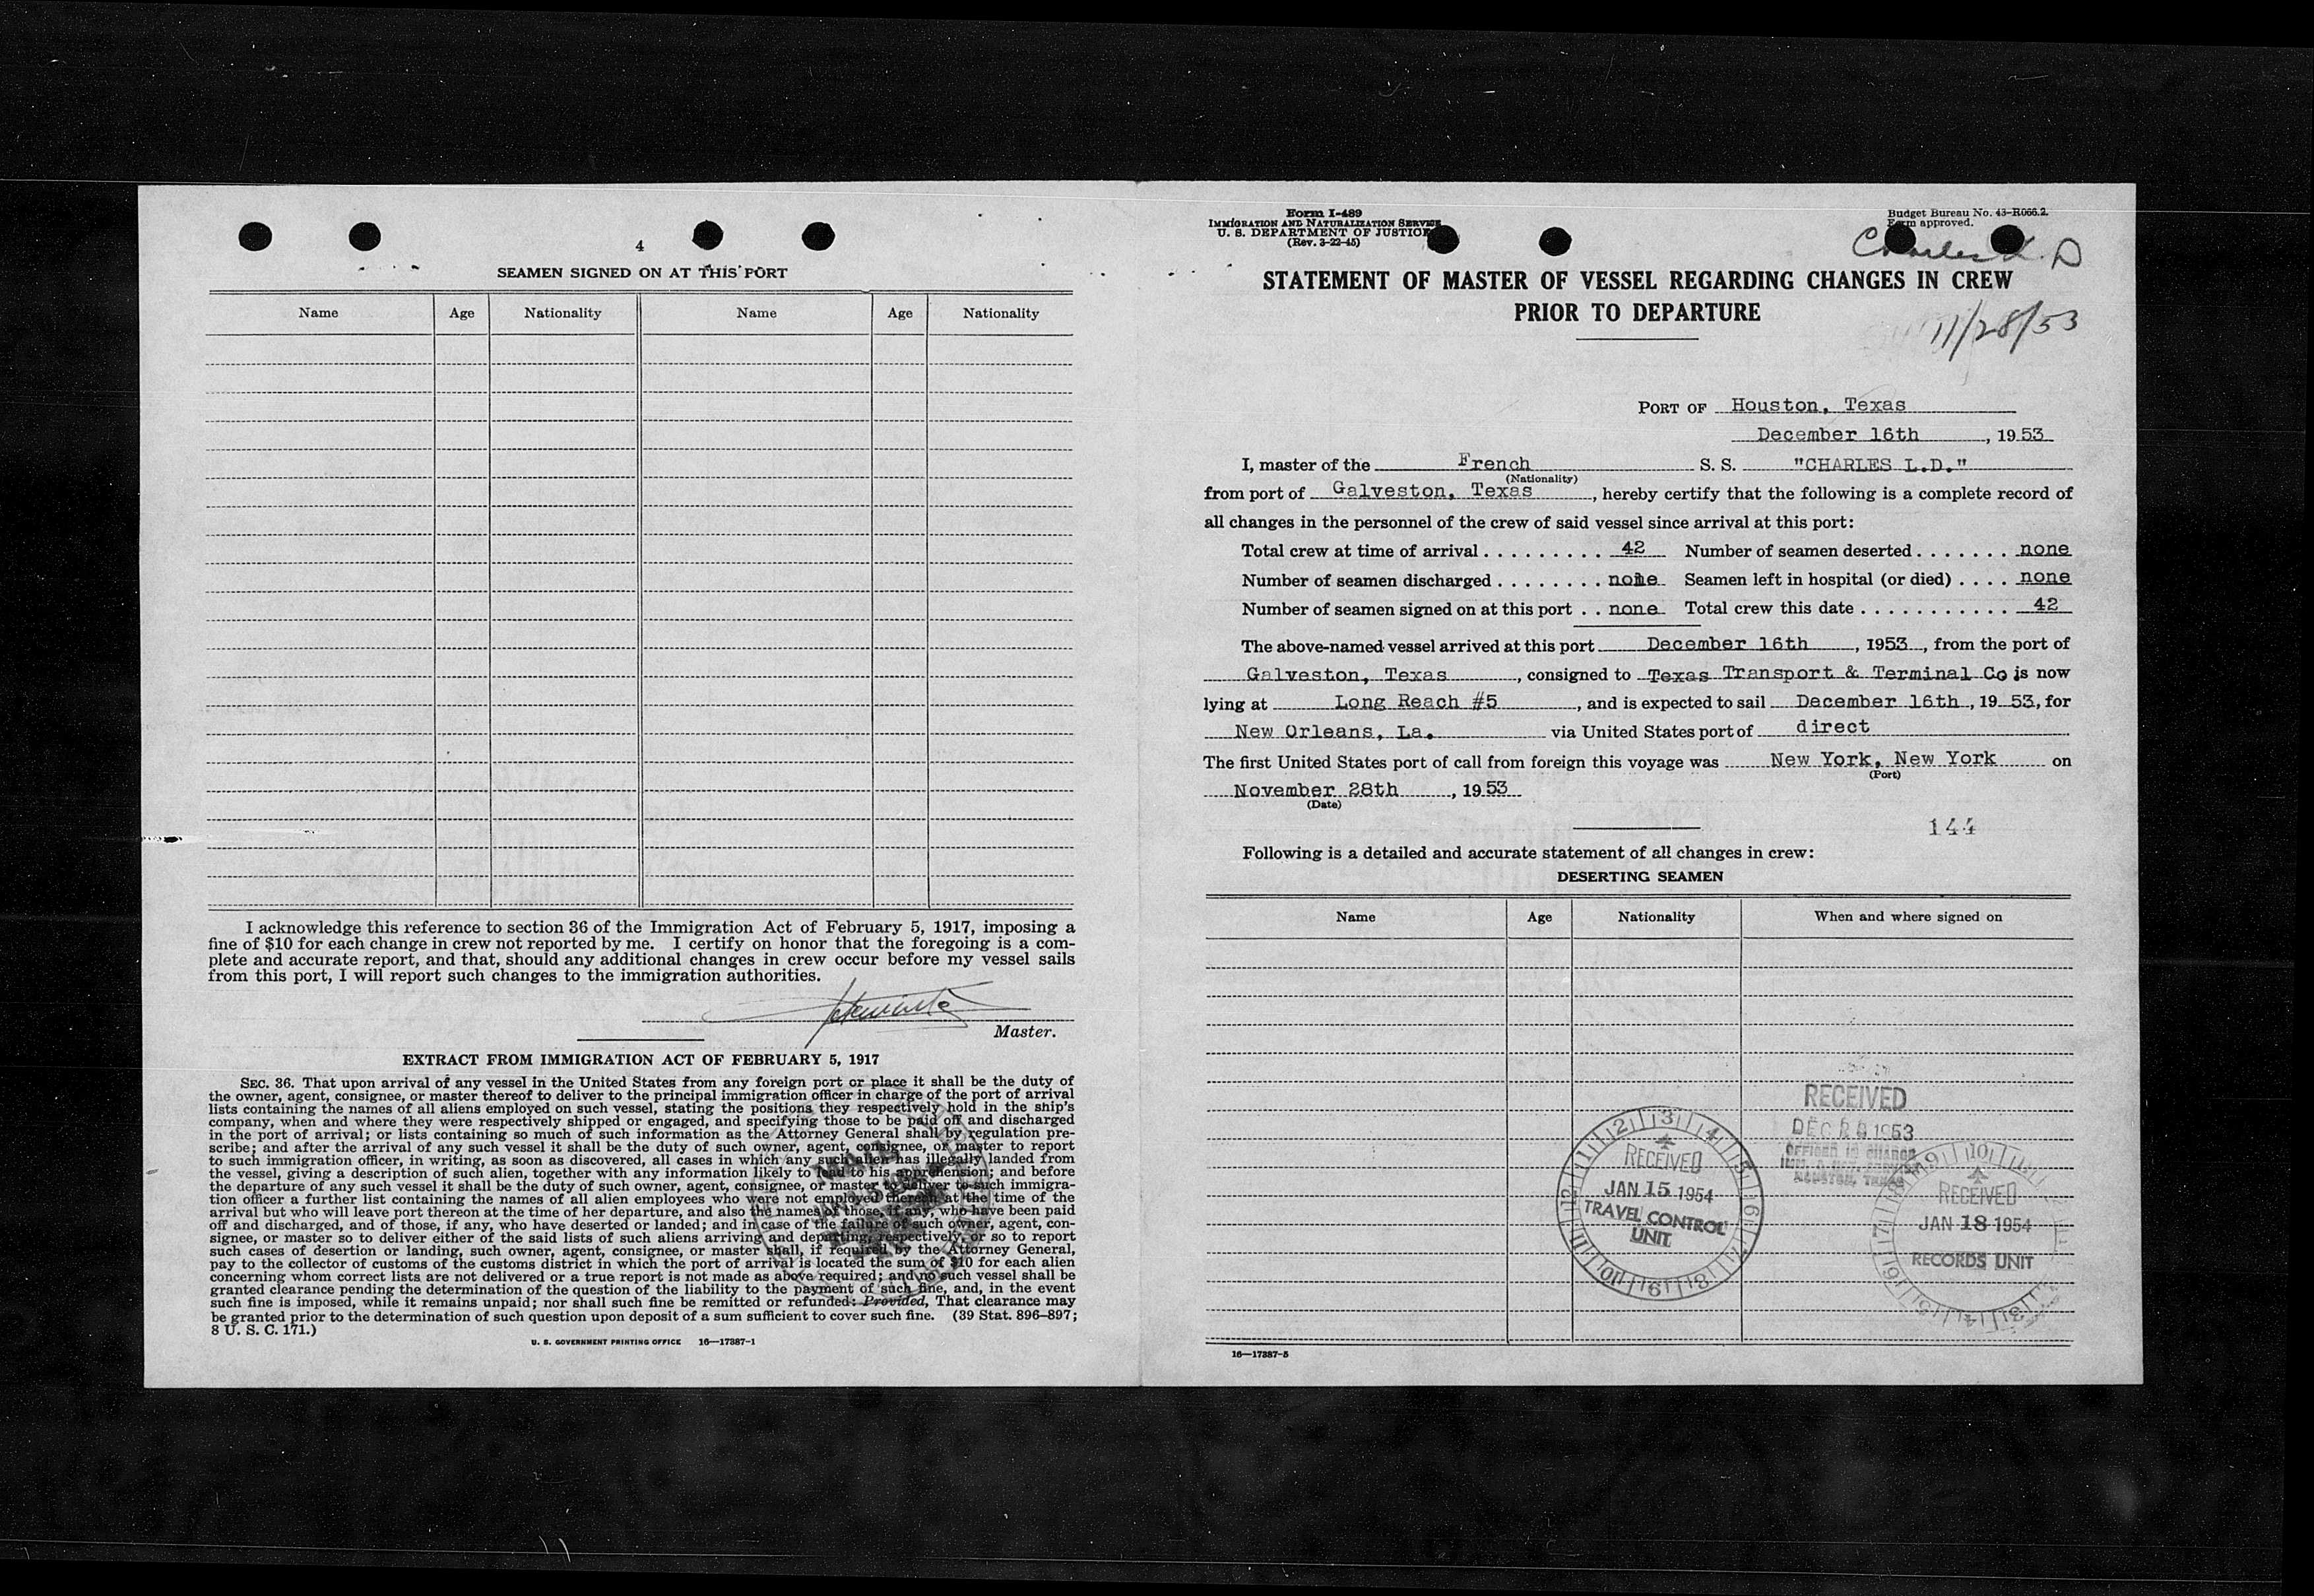 4
SEAMEN SIGNED ON AT THIS PORT
Name Age Nationality Name Age Nationality
I acknowledge this reference to section 36 of the Immigration Act of February 5, 1917, imposing a
fine of $10 for each change in crew not reported by me. I certify on honor that the foregoing is a com-
plete and accurate report, and that, should any additional changes in crew occur before my vessel sails
from this port, I will report such changes to the immigration authorities.
Master.
EXTRACT FROM IMMIGRATION ACT OF FEBRUARY 5, 1917
SEC. 36. That upon arrival of any vessel in the United States from any foreign port or place it shall be the duty of
the owner, agent, consignee, or master thereof to deliver to the principal immigration officer in charge of the port of arrival
lists containing the names of all aliens employed on such vessel, stating the positions they respectively hold in the ship's
company, when and where they were respectively shipped or engaged, and specifying those to be paid off and discharged
in the port of arrival; or lists containing so much of such information as the Attorney General shall by regulation pre-
scribe; and after the arrival of any such vessel it shall be the duty of such owner, agent, consignee, or master to report
to such immigration officer, in writing, as soon as discovered, all cases in which any such alien has illegally landed from
the vessel, giving a description of such alien, together with any information likely to lead to his apprehension; and before
the departure of any such vessel it shall be the duty of such owner, agent, consignee, or master to deliver to such immigra-
tion officer a further list containing the names of all alien employees who were not employed thereon at the time of the
arrival but who will leave port thereon at the time of her departure, and also the names of those, if any, who have been paid
off and discharged, and of those, if any, who have deserted or landed; and in case of the failure of such owner, agent, con-
signee, or master so to deliver either of the said lists of such aliens arriving and departing, respectively, or so to report
such cases of desertion or landing, such owner, agent, consignee, or master shall, if required by the Attorney General,
pay to the collector of customs of the customs district in which the port of arrival is located the sum of $10 for each alien
concerning whom correct lists are not delivered or a true report is not made as above required; and no such vessel shall be
granted clearance pending the determination of the question of the liability to the payment of such fine, and, in the event
such fine is imposed, while it remains unpaid; nor shall such fine be remitted or refunded: Provided, That clearance may
be granted prior to the determination of such question upon deposit of a sum sufficient to cover such fine. (39 Stat. 896–897;
8 U. S. C. 171.)
U. S. GOVERNMENT PRINTING OFFICE 16—17387-1
Form I-489
IMMIGRATION AND NATURALIZATION SERVICE
U. S. DEPARTMENT OF JUSTICE
(Rev. 3-22-45)
Budget Bureau No. 43–R066.2.
Form approved.
Charles L. D
STATEMENT OF MASTER OF VESSEL REGARDING CHANGES IN CREW
PRIOR TO DEPARTURE
11/28/53
PORT OF Houston, Texas
December 16th, 1953
I, master of the French S. S. "CHARLES L.D."
(Nationality)
from port of Galveston, Texas, hereby certify that the following is a complete record of
all changes in the personnel of the crew of said vessel since arrival at this port:
Total crew at time of arrival . . . . . . . . . 42 Number of seamen deserted . . . . . . . none
Number of seamen discharged . . . . . . . . none Seamen left in hospital (or died) . . . . none
Number of seamen signed on at this port . . none Total crew this date . . . . . . . . . . . . 42
The above-named vessel arrived at this port December 16th, 1953, from the port of
Galveston, Texas, consigned to Texas Transport & Terminal Co is now
lying at Long Reach #5, and is expected to sail December 16th, 1953, for
New Orleans, La. via United States port of direct
The first United States port of call from foreign this voyage was New York, New York on
(Port)
November 28th, 1953
(Date)
144
Following is a detailed and accurate statement of all changes in crew:
DESERTING SEAMEN
Name Age Nationality When and where signed on
RECEIVED
1953
OFFICER IN CHARGE
HOUSTON, TEXAS
1 2 3 4 5 6 7 8 9 10 11 12
RECEIVED
JAN 15 1954
TRAVEL CONTROL
UNIT
RECEIVED
JAN 18 1954
RECORDS UNIT
16—17387-5